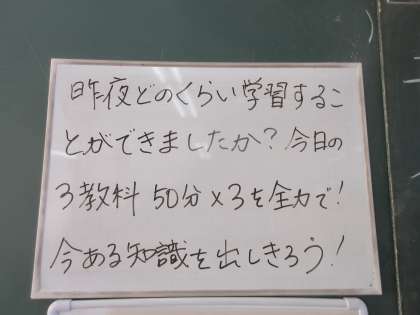 昨夜どのくらい学習するこ
とができましたか?今日の
3教科 50分×3を全力で!
今ある知識を出しきろう!